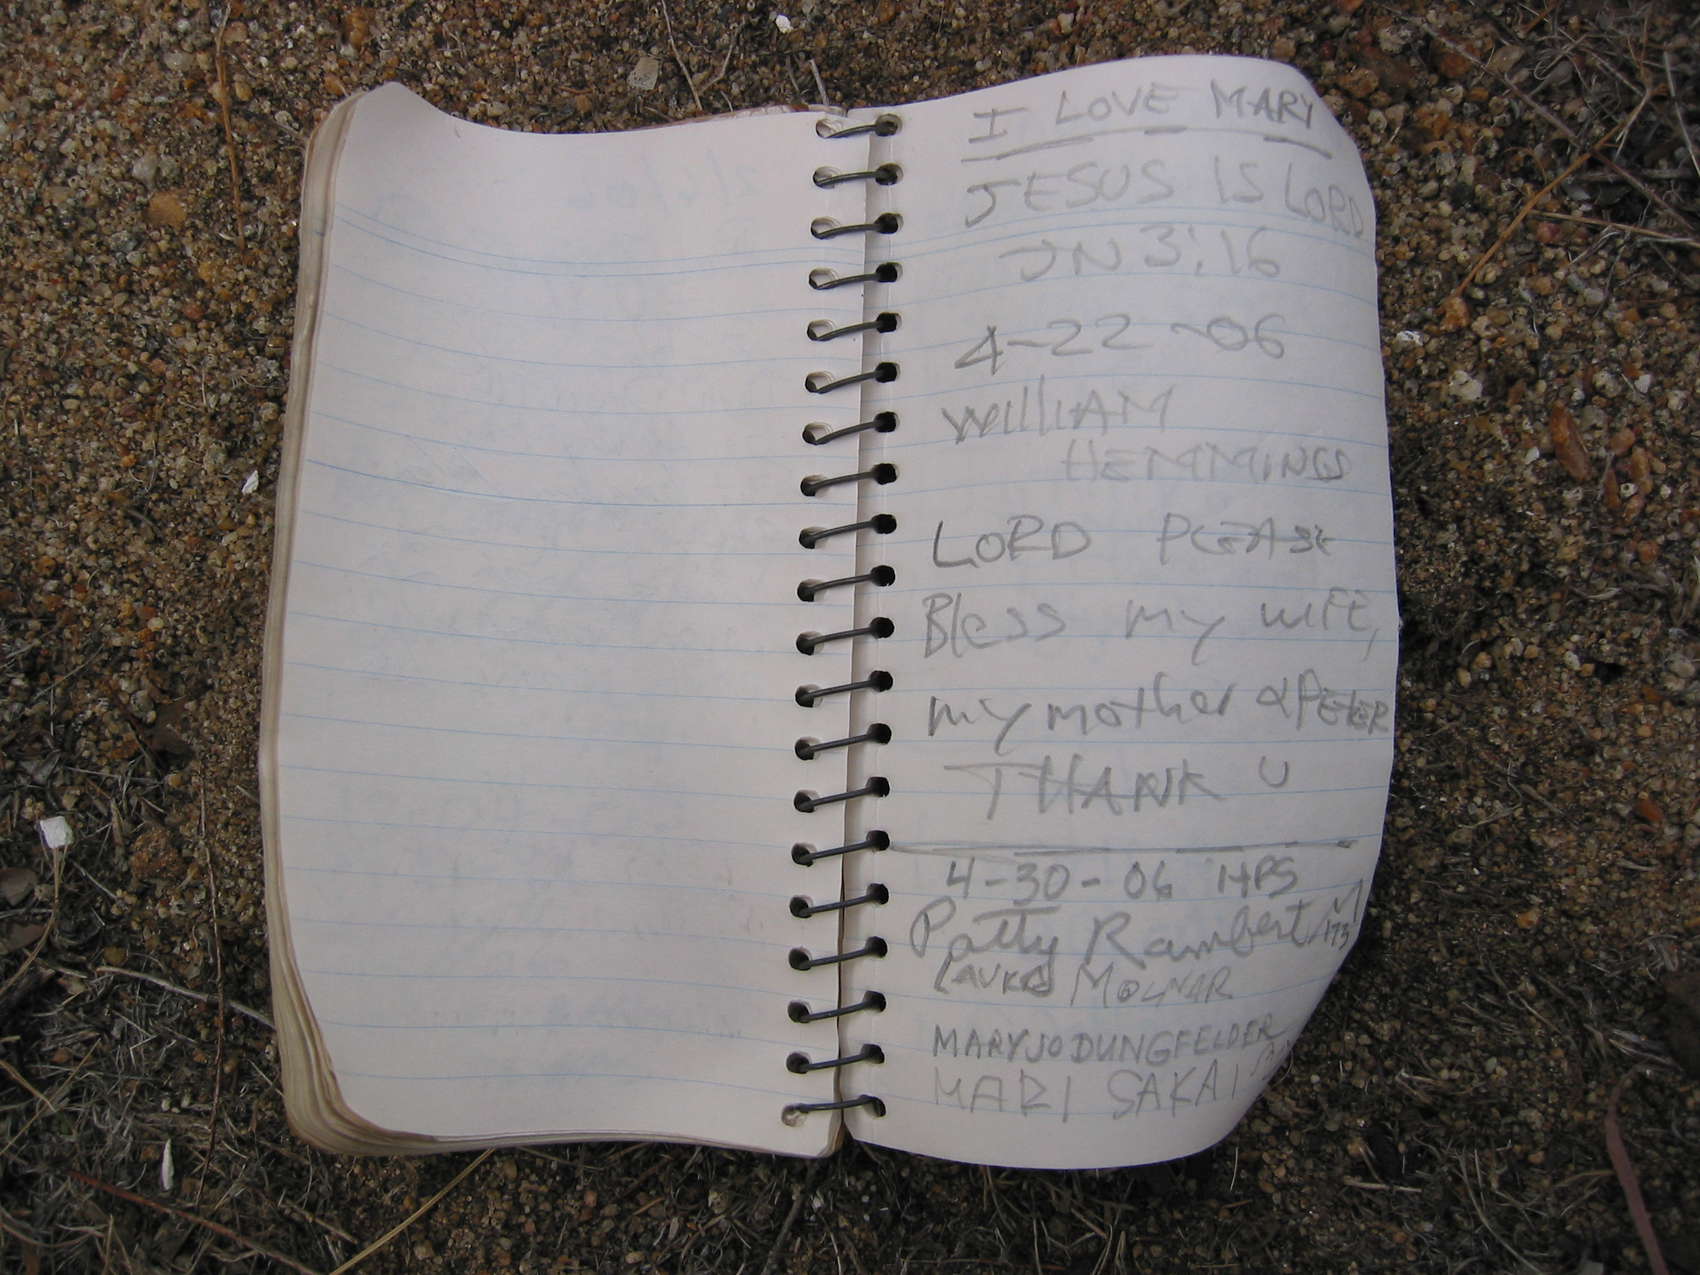 I LOVE MARY
JESUS IS LORD
JN 3:16
4-22-06
WILLIAM
HEMMINGS
LORD PLEASE
Bless my wIFE,
my mother & PETER
THANK U
4-30-06 HPS
Patty Rambert
LAURA MOLNAR
MARYJO DUNGFELDER
MARI SAKAI